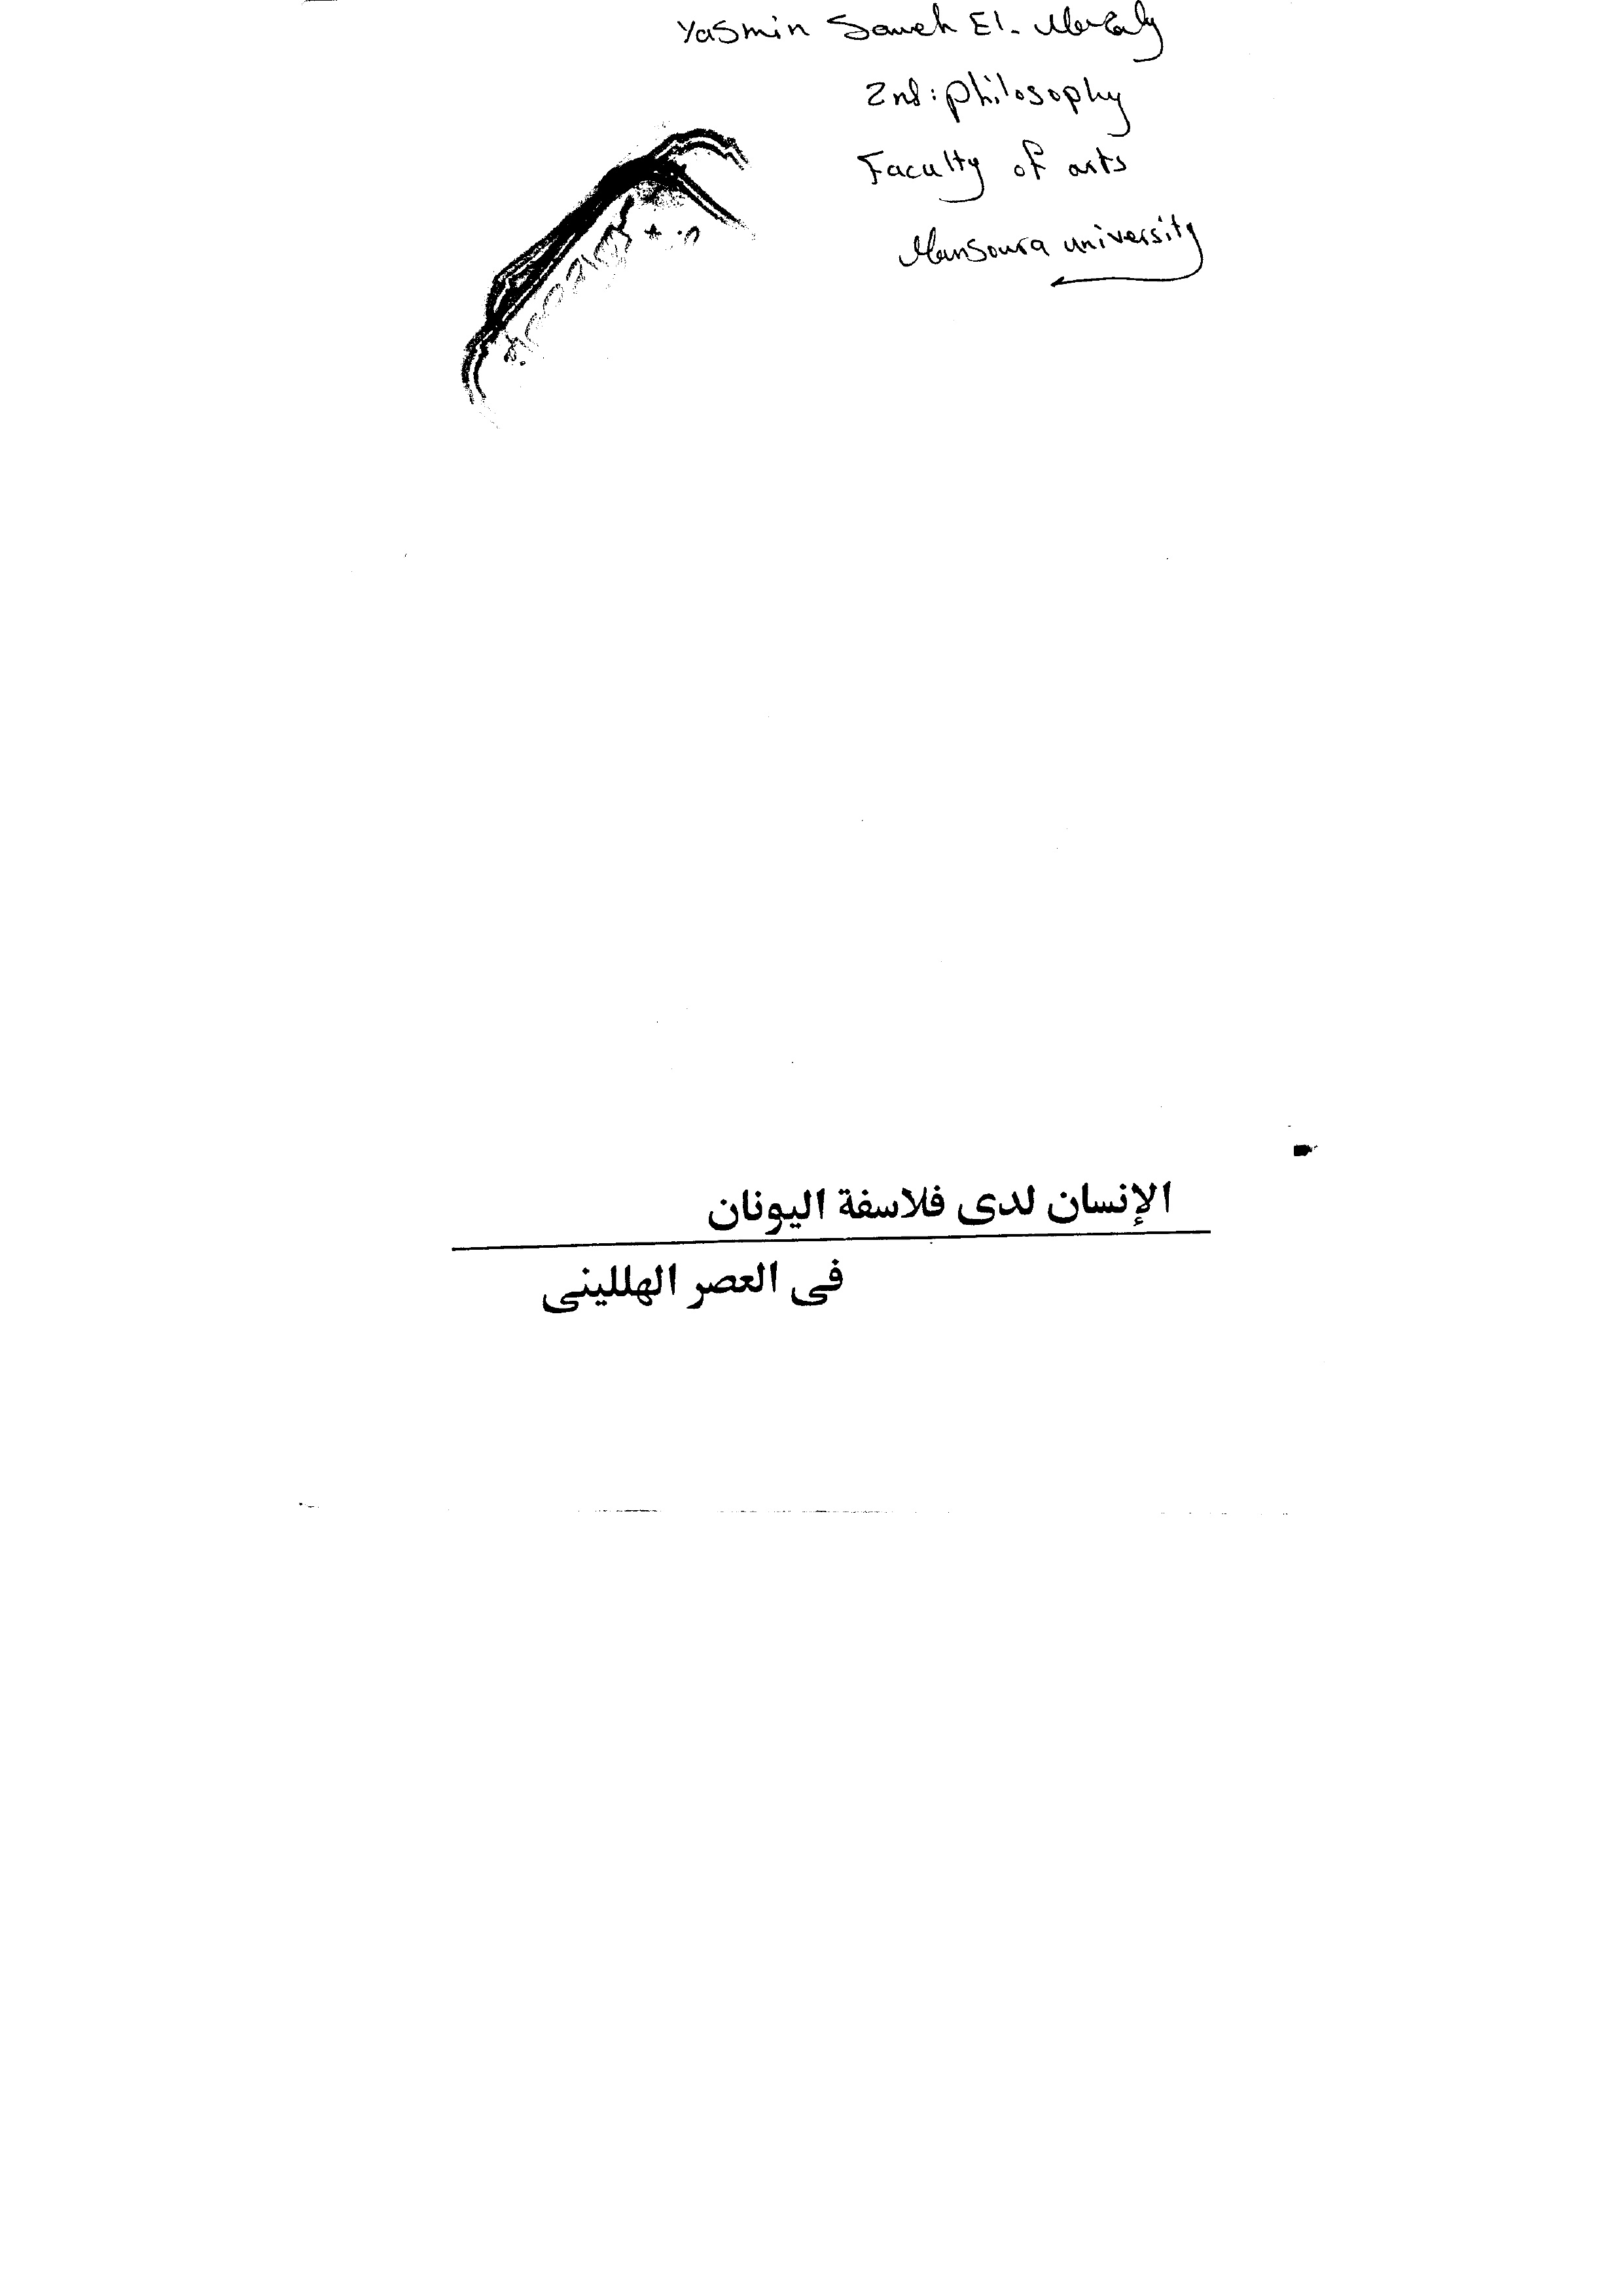 Yasmin Sameh El-
2nd: philosophy
Faculty of arts
Mansoura university
الإنسان لدى فلاسفة اليونان
فى العصر الهللينى